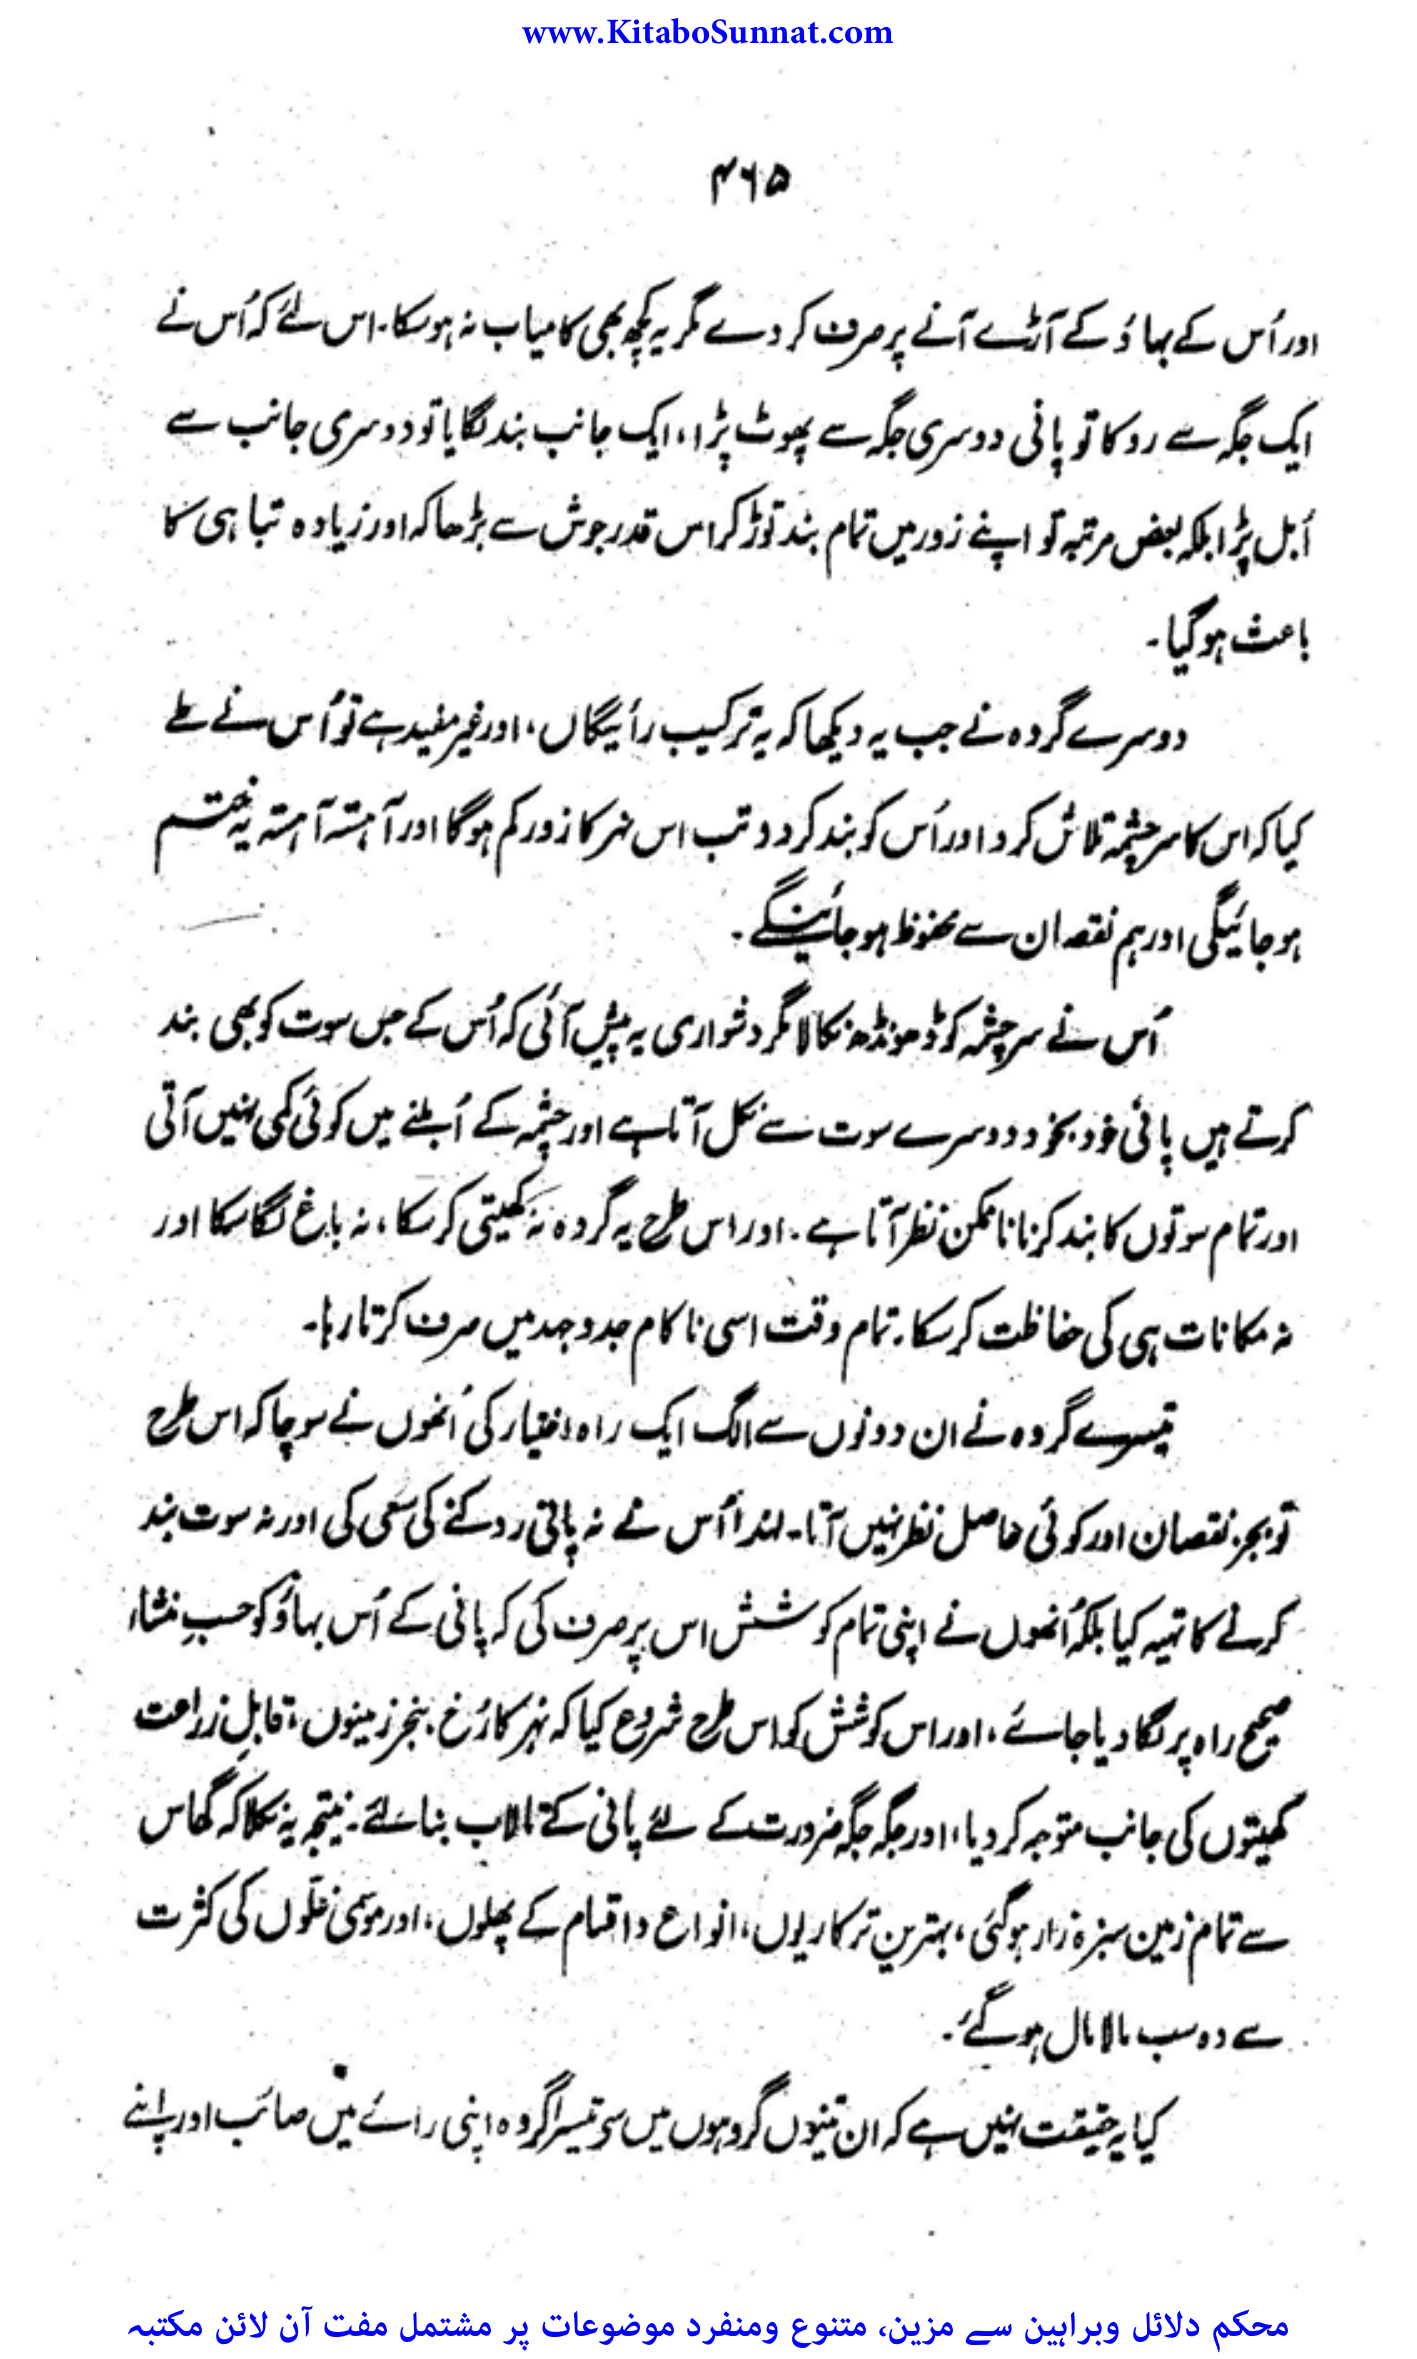 www.KitaboSunnat.com
۴۶۵
اور اُس کے بہاؤ کے آڑے آنے پر صرف کر دے مگر یہ کچھ بھی کامیاب نہ ہو سکا۔ اس لئے کہ اُس نے
ایک جگہ سے روکا تو پانی دوسری جگہ سے پھوٹ پڑا، ایک جانب بند لگایا تو دوسری جانب سے
اُبل پڑا بلکہ بعض مرتبہ تو اپنے زور میں تمام بند توڑ کر اس قدر جوش سے بڑھا کہ اور زیادہ تباہی کا
باعث ہو گیا۔
دوسرے گروہ نے جب یہ دیکھا کہ یہ ترکیب رائیگاں، اور غیر مفید ہے تو اُس نے طے
کیا کہ اس کا سرچشمہ تلاش کرو اور اُس کو بند کر دو تب اس نہر کا زور کم ہوگا اور آہستہ آہستہ یہ ختم
ہو جائیگی اور ہم نقصان سے محفوظ ہو جائینگے۔
اُس نے سرچشمہ کو ڈھونڈھ نکالا مگر دشواری یہ پیش آئی کہ اُس کے جس سوت کو بھی بند
کرتے ہیں پانی خود بخود دوسرے سوت سے نکل آتا ہے اور چشمہ کے اُبلنے میں کوئی کمی نہیں آتی
اور تمام سوتوں کا بند کرنا ناممکن نظر آتا ہے۔ اور اس طرح یہ گروہ نہ کھیتی کر سکا، نہ باغ لگا سکا اور
نہ مکانات ہی کی حفاظت کر سکا۔ تمام وقت اسی ناکام جدوجہد میں صرف کرتا رہا۔
تیسرے گروہ نے ان دونوں سے الگ ایک راہ اختیار کی اُنھوں نے سوچا کہ اس طرح
تو بجز نقصان اور کوئی حاصل نظر نہیں آتا۔ لہٰذا اُس نے نہ پانی روکنے کی سعی کی اور نہ سوت بند
کرنے کا تہیہ کیا بلکہ اُنھوں نے اپنی تمام کوشش اس پر صرف کی کہ پانی کے اُس بہاؤ کو حسبِ منشاء
صحیح راہ پر لگا دیا جائے، اور اس کوشش کو اس طرح شروع کیا کہ نہر کا رُخ بنجر زمینوں، قابلِ زراعت
کھیتوں کی جانب متوجہ کر دیا، اور جگہ جگہ ضرورت کے لئے پانی کے تالاب بنا لئے۔ نتیجہ یہ نکلا کہ گھاس
سے تمام زمین سبزہ زار ہو گئی، بہترین ترکاریوں، انواع و اقسام کے پھلوں، اور موسمی غلّوں کی کثرت
سے وہ سب مالا مال ہو گئے۔
کیا یہ حقیقت نہیں ہے کہ ان تینوں گروہوں میں سے تیسرا گروہ اپنی رائے میں صائب اور اپنے
محکم دلائل وبراہین سے مزین، متنوع ومنفرد موضوعات پر مشتمل مفت آن لائن مکتبہ